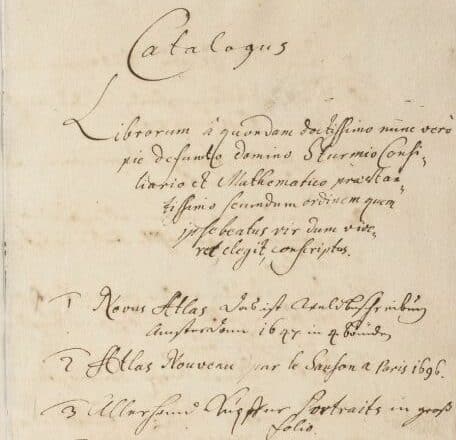 Catalogus
Librorum à quondam doctissimo nunc verò
pie defuncto domino Sturmio Consi-
liario et Mathematico præstan-
tissimo secundum ordinem quem
ipse beatus vir dum vive-
ret, elegit, conscriptus.
1 Novus Atlas das ist Weldbeschreibung
Amsterdam 1647 in 4 bänden
2 Atlas Nouveau par le Sanson a Paris 1696.
3 Allerhand Kupffer Portraits in groß
folio.